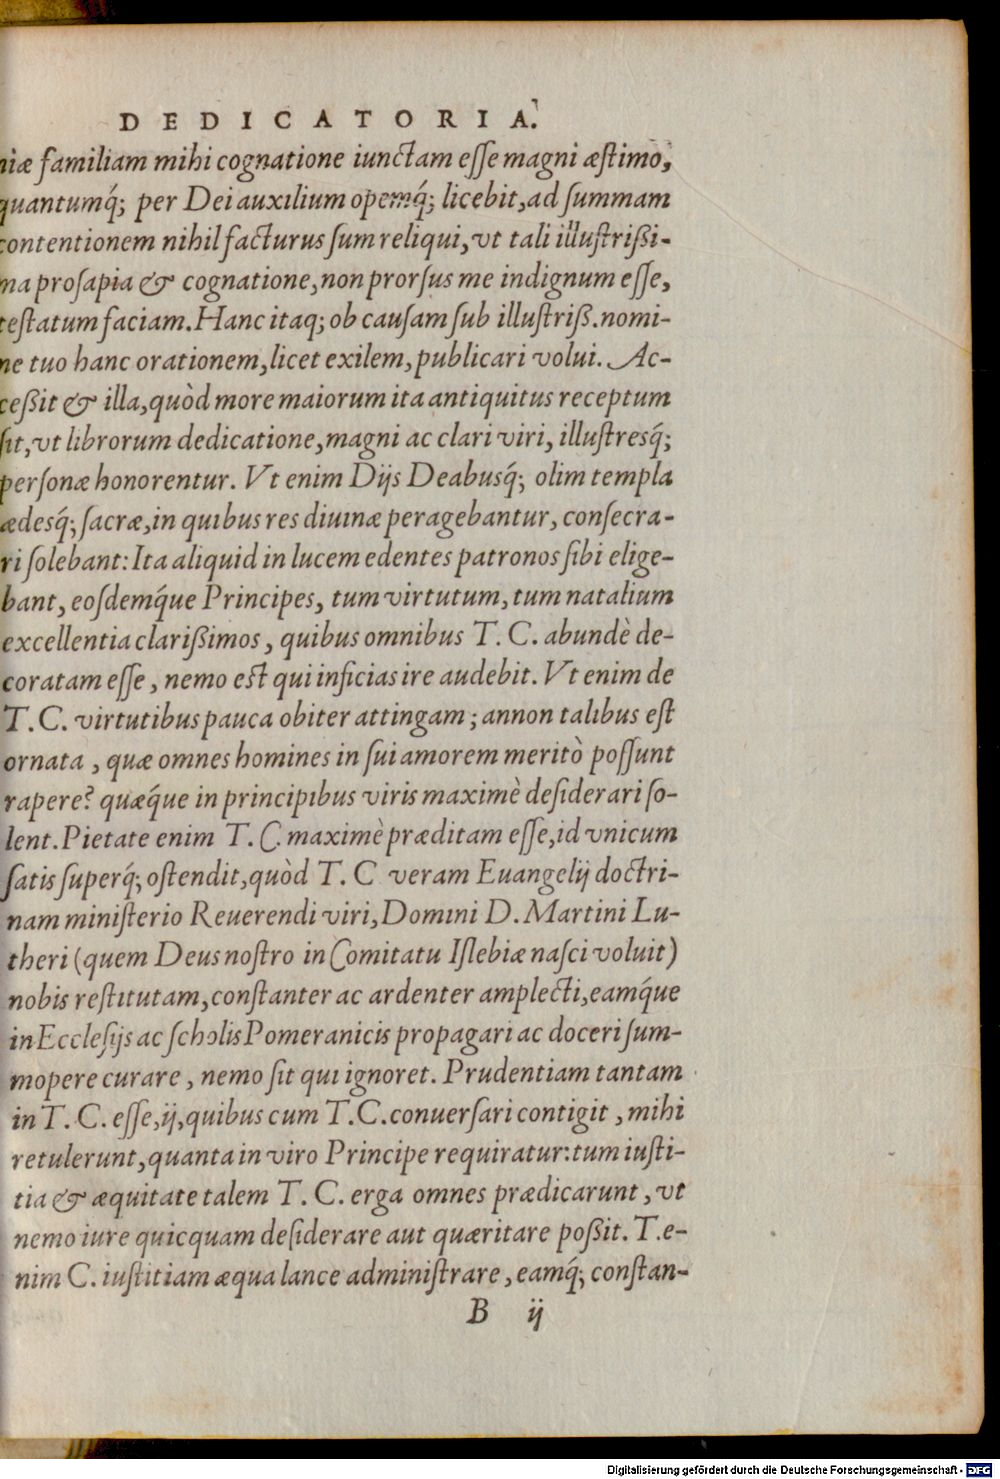 DEDICATORIA.
niæ familiam mihi cognatione iunctam esse magni æstimo,
quantumq́; per Dei auxilium opemq́; licebit, ad summam
contentionem nihil facturus sum reliqui, vt tali illustrißi-
ma prosapia & cognatione, non prorsus me indignum esse,
testatum faciam. Hanc itaq; ob causam sub illustriß. nomi-
ne tuo hanc orationem, licet exilem, publicari volui. Ac-
ceßit & illa, quòd more maiorum ita antiquitus receptum
sit, vt librorum dedicatione, magni ac clari viri, illustresq́;
personæ honorentur. Vt enim Dijs Deabusq́; olim templa
ædesq́; sacræ, in quibus res diuinæ peragebantur, consecra-
ri solebant: Ita aliquid in lucem edentes patronos sibi elige-
bant, eosdemq́ue Principes, tum virtutum, tum natalium
excellentia clarißimos, quibus omnibus T. C. abundè de-
coratam esse, nemo est qui inficias ire audebit. Vt enim de
T. C. virtutibus pauca obiter attingam; annon talibus est
ornata, quæ omnes homines in sui amorem meritò possunt
rapere? quæq́ue in principibus viris maximè desiderari so-
lent. Pietate enim T. C. maximè præditam esse, id vnicum
satis superq́; ostendit, quòd T. C veram Euangelij doctri-
nam ministerio Reuerendi viri, Domini D. Martini Lu-
theri (quem Deus nostro in Comitatu Islebiæ nasci voluit)
nobis restitutam, constanter ac ardenter amplecti, eamq́ue
in Ecclesijs ac scholis Pomeranicis propagari ac doceri sum-
mopere curare, nemo sit qui ignoret. Prudentiam tantam
in T. C. esse, ij, quibus cum T. C. conuersari contigit, mihi
retulerunt, quanta in viro Principe requiratur: tum iusti-
tia & æquitate talem T. C. erga omnes prædicarunt, vt
nemo iure quicquam desiderare aut quæritare poßit. T. e-
nim C. iustitiam æqua lance administrare, eamq́; constan-
B ij
Digitalisierung gefördert durch die Deutsche Forschungsgemeinschaft - DFG